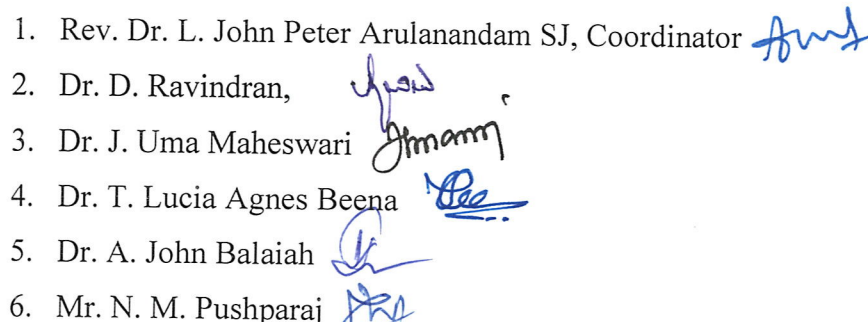 1. Rev. Dr. L. John Peter Arulanandam SJ, Coordinator
2. Dr. D. Ravindran,
3. Dr. J. Uma Maheswari
4. Dr. T. Lucia Agnes Beena
5. Dr. A. John Balaiah
6. Mr. N. M. Pushparaj